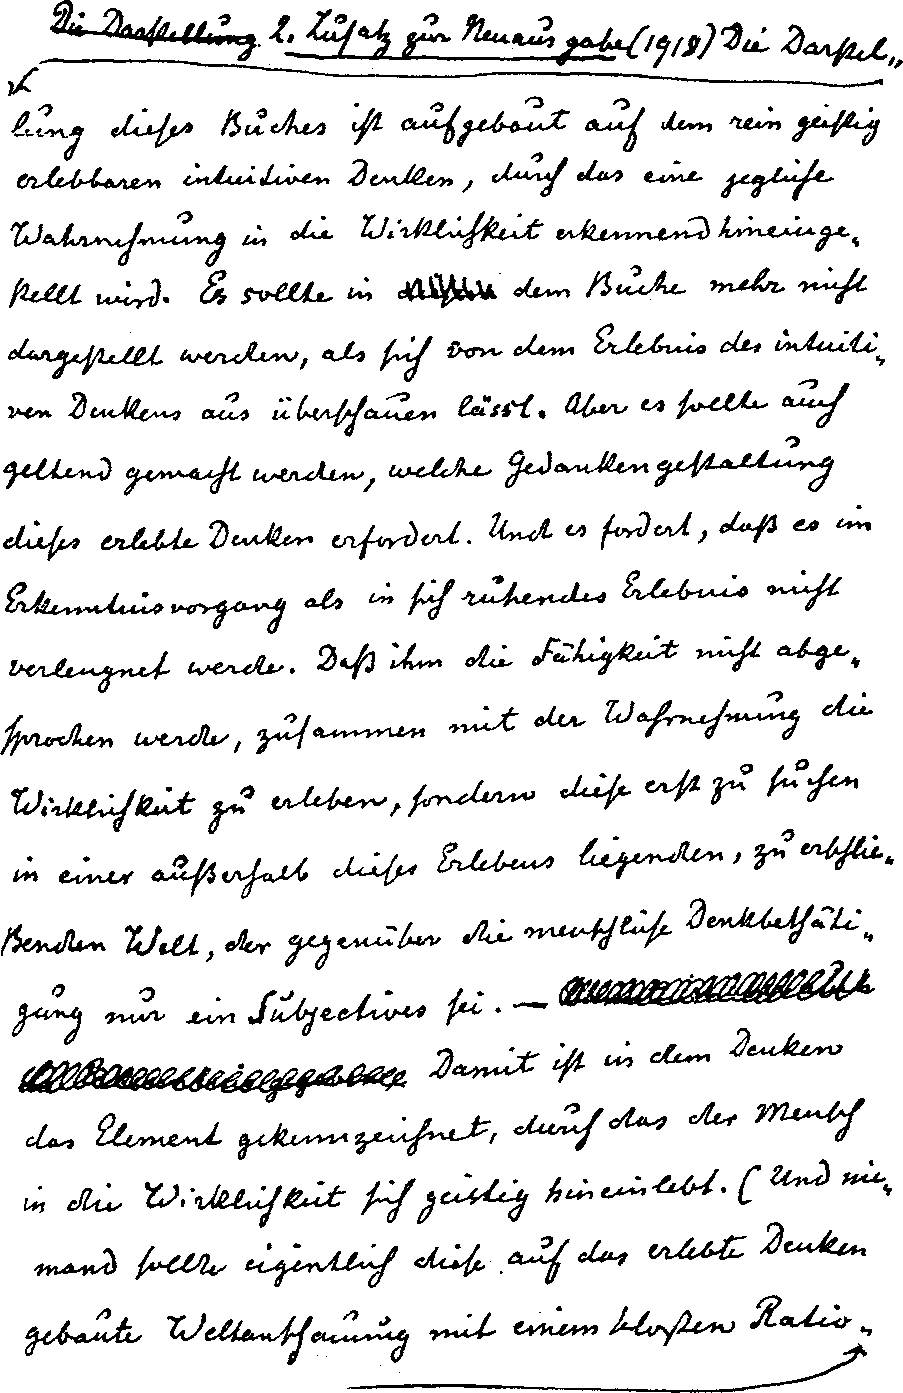 Die Darstellung 2. Zusatz zur Neuausgabe (1918) Die Darstel„
lung dieses Buches ist aufgebaut auf dem rein geistig
erlebbaren intuitiven Denken, durch das eine jegliche
Wahrnehmung in die Wirklichkeit erkennend hineinge„
stellt wird. Es sollte in dem Buche mehr nicht
dargestellt werden, als sich von dem Erlebnis des intuiti„
ven Denkens aus überschauen lässt. Aber es sollte auch
geltend gemacht werden, welche Gedankengestaltung
dieses erlebte Denken erfordert. Und es fordert, daß es im
Erkenntnisvorgang als in sich ruhendes Erlebnis nicht
verleugnet werde. Daß ihm die Fähigkeit nicht abge„
sprochen werde, zusammen mit der Wahrnehmung die
Wirklichkeit zu erleben, sondern diese erst zu suchen
in einer außerhalb dieses Erlebens liegenden, zu erschlie„
ßenden Welt, der gegenüber die menschliche Denkbethäti„
gung nur ein Subjectives sei. —
Damit ist in dem Denken
das Element gekennzeichnet, durch das der Mensch
in die Wirklichkeit sich geistig hineinlebt. (Und nie„
mand sollte eigentlich diese auf das erlebte Denken
gebaute Weltanschauung mit einem bloßen Ratio„